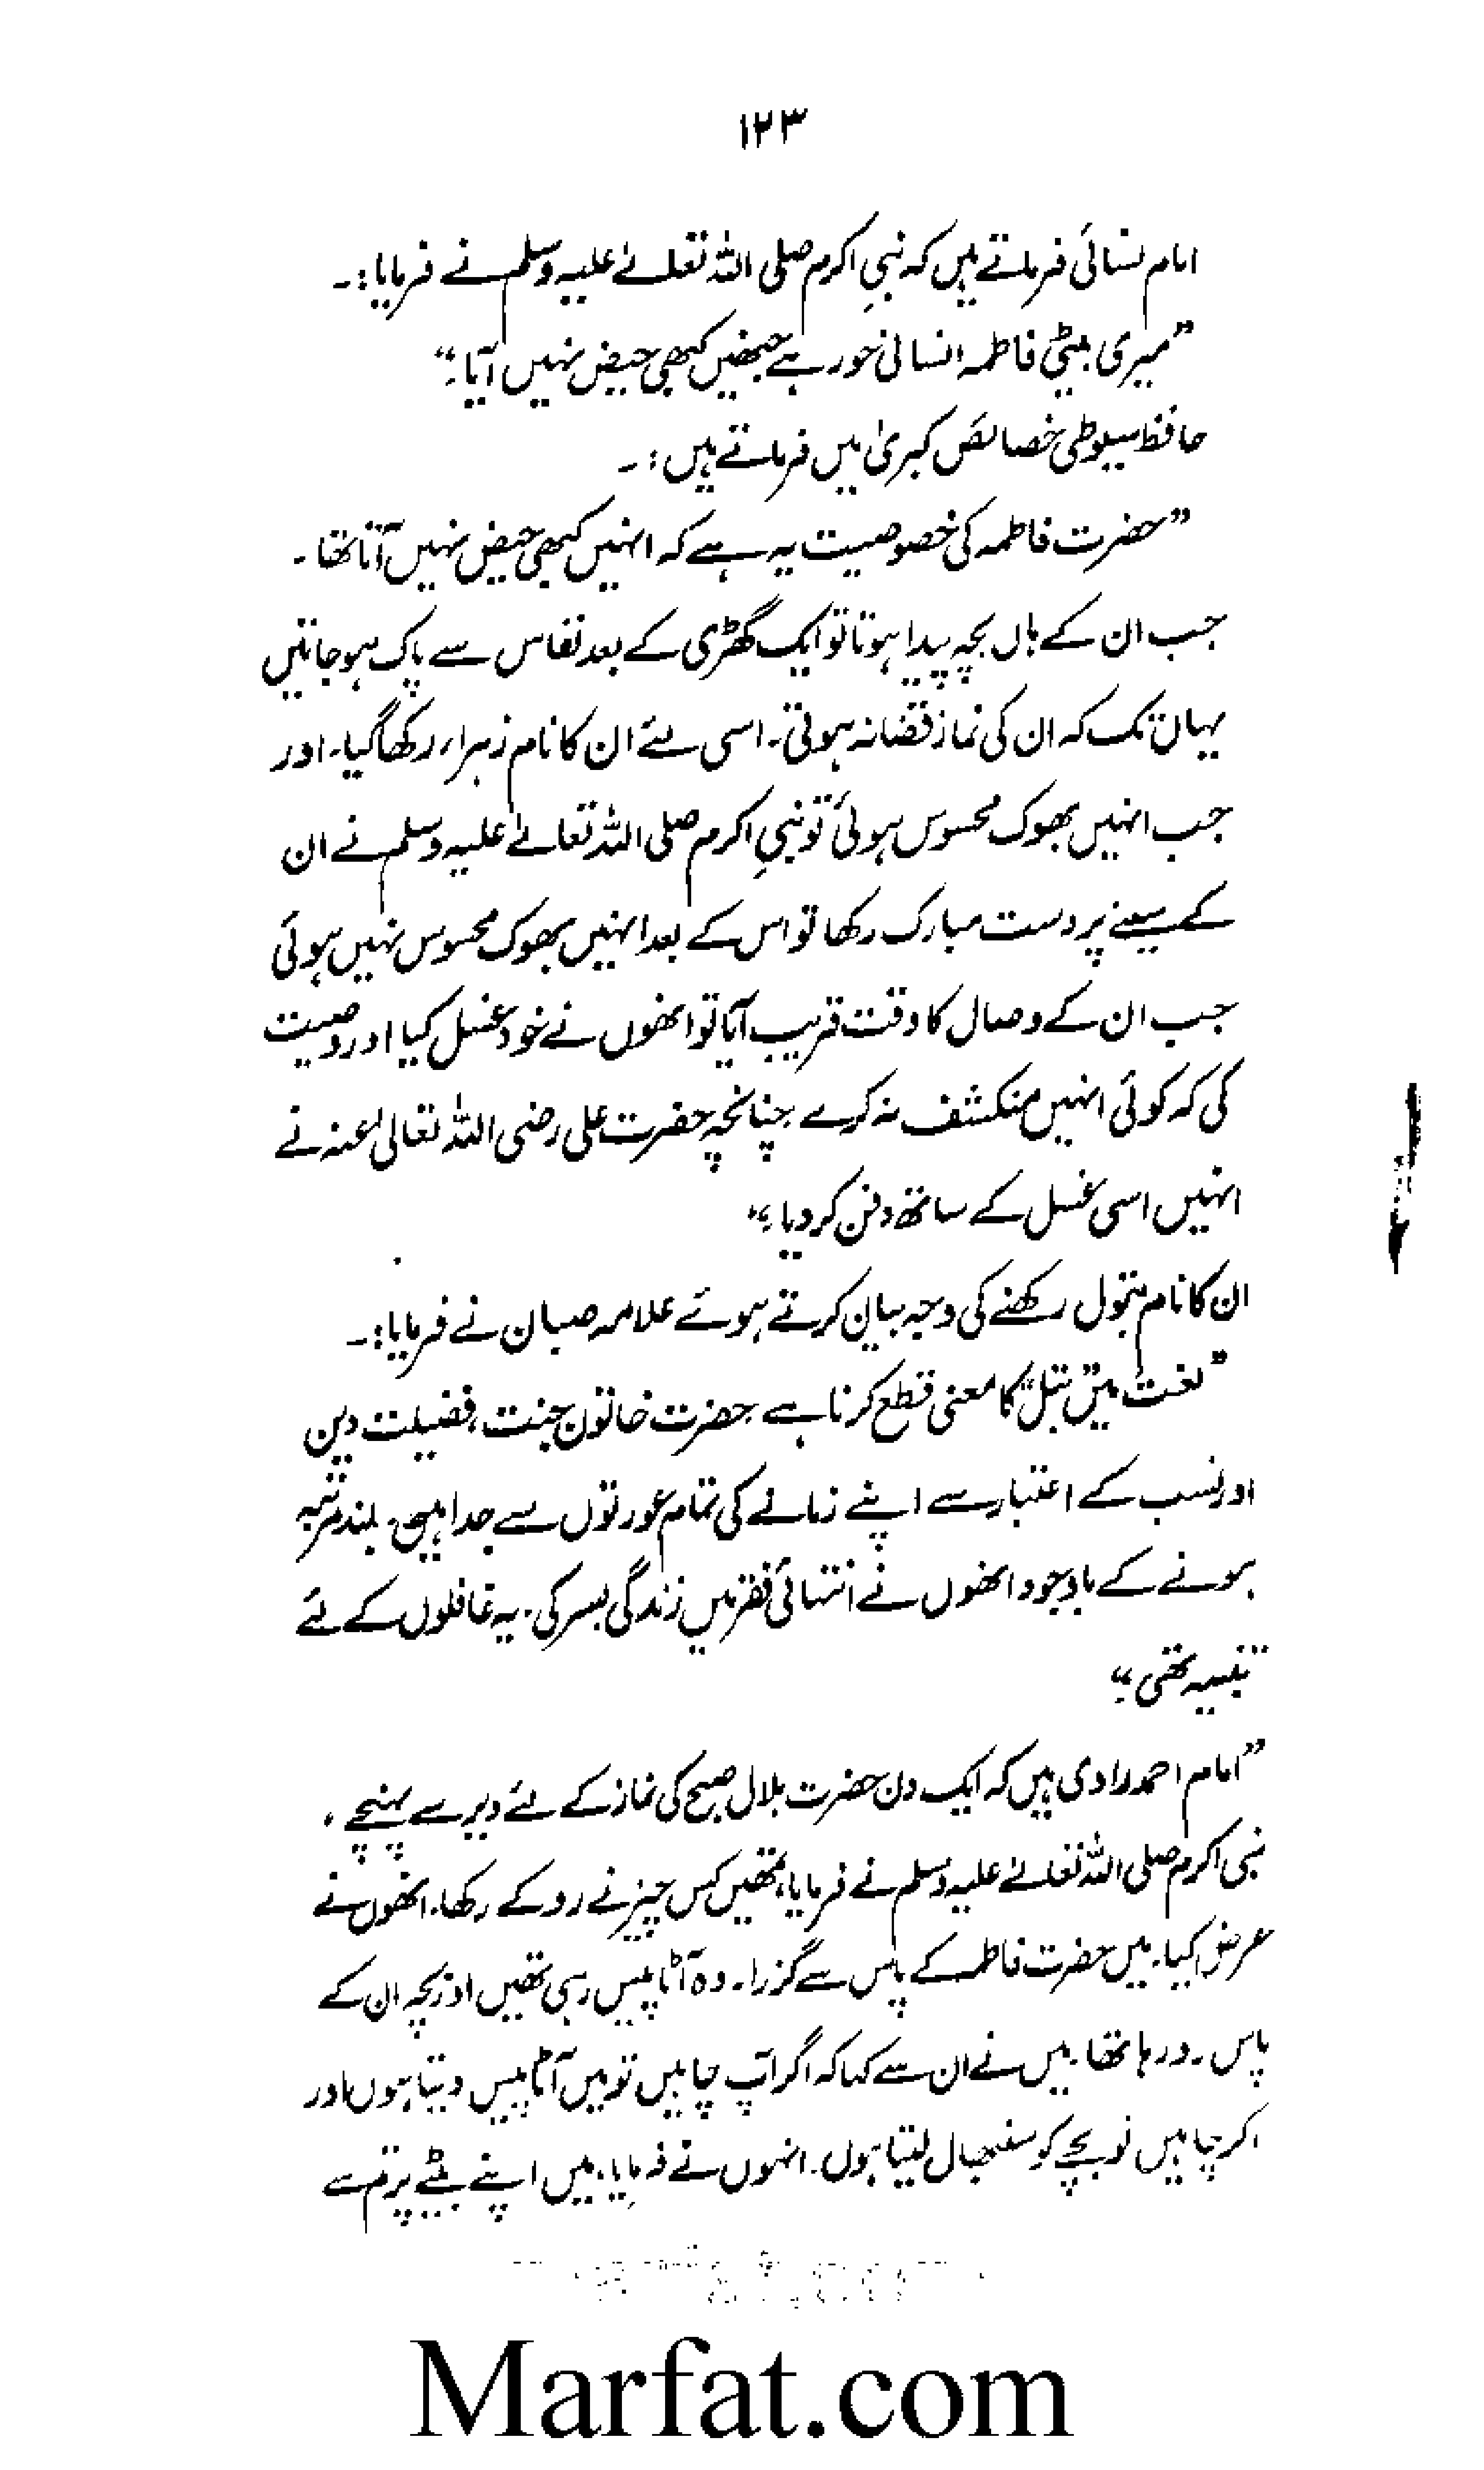 ۱۲۳
امام نسائی فرماتے ہیں کہ نبیِ اکرم صلی اللہ تعلےٰ علیہ وسلم نے فرمایا:۔
”میری بیٹی فاطمہ انسانی حور ہے جنھیں کبھی حیض نہیں آیا۔“
حافظ سیوطی خصائص کبریٰ میں فرماتے ہیں:۔
”حضرت فاطمہ کی خصوصیت یہ ہے کہ انہیں کبھی حیض نہیں آتا تھا۔
جب ان کے ہاں بچہ پیدا ہوتا تو ایک گھڑی کے بعد نفاس سے پاک ہو جاتیں
یہاں تک کہ ان کی نماز قضا نہ ہوتی۔ اسی لئے ان کا نام زہراء رکھا گیا۔ اور
جب انہیں بھوک محسوس ہوئی تو نبیِ اکرم صلی اللہ تعالےٰ علیہ وسلم نے ان
کے سینے پر دست مبارک رکھا تو اس کے بعد انہیں بھوک محسوس نہیں ہوئی
جب ان کے وصال کا وقت قریب آیا تو انھوں نے خود غسل کیا اور وصیت
کی کہ کوئی انہیں منکشف نہ کرے چنانچہ حضرت علی رضی اللہ تعالیٰ عنہ نے
انہیں اسی غسل کے ساتھ دفن کر دیا۔“
ان کا نام بتول رکھنے کی وجہ بیان کرتے ہوئے علامہ صبان نے فرمایا:۔
”لغت میں ”بتل“ کا معنی قطع کرنا ہے حضرت خاتون جنت، فضیلت دین
اور نسب کے اعتبار سے اپنے زمانے کی تمام عورتوں سے جدا ہیں۔ بلند مرتبہ
ہونے کے باوجود انھوں نے انتہائی فقر میں زندگی بسر کی۔ یہ غافلوں کے لئے
تنبیہ تھی۔“
”امام احمد راوی ہیں کہ ایک دن حضرت بلال صبح کی نماز کے لئے دیر سے پہنچے،
نبی اکرم صلی اللہ تعلےٰ علیہ وسلم نے فرمایا، تمھیں کس چیز نے روکے رکھا، انھوں نے
عرض کیا۔ میں حضرت فاطمہ کے پاس سے گزرا۔ وہ آٹا پیس رہی تھیں اور بچہ ان کے
پاس رو رہا تھا۔ میں نے ان سے کہا کہ اگر آپ چاہیں تو میں آٹا پیس دیتا ہوں اور
اگر چاہیں تو بچے کو سنبھال لیتا ہوں۔ انہوں نے فرمایا، میں اپنے بیٹے پر تم سے
Marfat.com